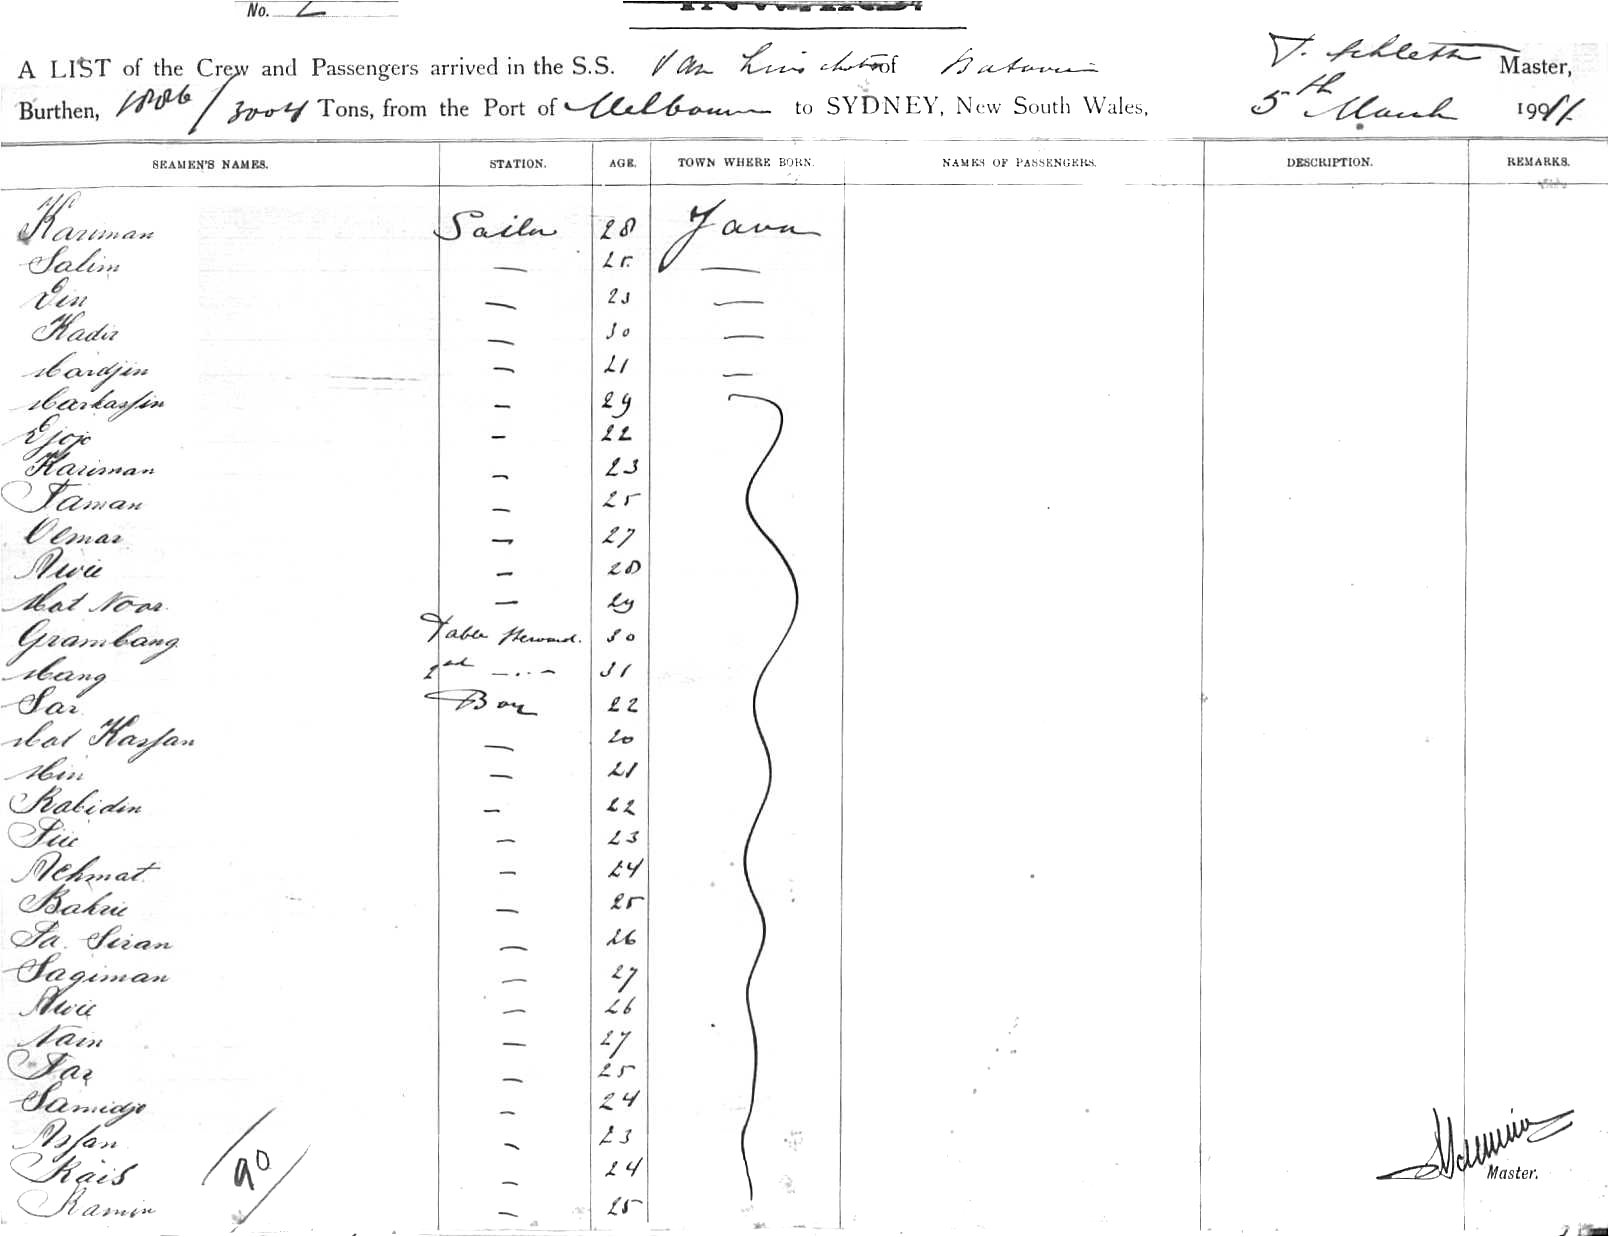 No. 2
INWARD.
A LIST of the Crew and Passengers arrived in the S.S. Van Linschoten of Batavia Master,
Burthen, 1886/3004 Tons, from the Port of Melbourne to SYDNEY, New South Wales, 5th March 19
SEAMEN'S NAMES. STATION. AGE. TOWN WHERE BORN. NAMES OF PASSENGERS. DESCRIPTION. REMARKS.
Kariman Sailor 28 Java
Salim — 25 —
Din — 23 —
Kadir — 30 —
Mardjin — 21 —
Markassin — 29
Djojo — 22
Kariman — 23
Taman — 25
Oemar — 27
Awie — 28
Mat Noor — 29
Grambang Table Steward. 30
Mang 2nd — 31
Sar Boy 22
Mat Kassan — 20
Min — 21
Rabidin — 22
— 23
Achmat — 24
Bakrie — 25
Pa. Siran — 26
Sagiman — 27
Awie — 26
Nain — 27
Tar — 25
Samidjo — 24
Assan — 23
Rais — 24
Ramin — 25
90
Master.